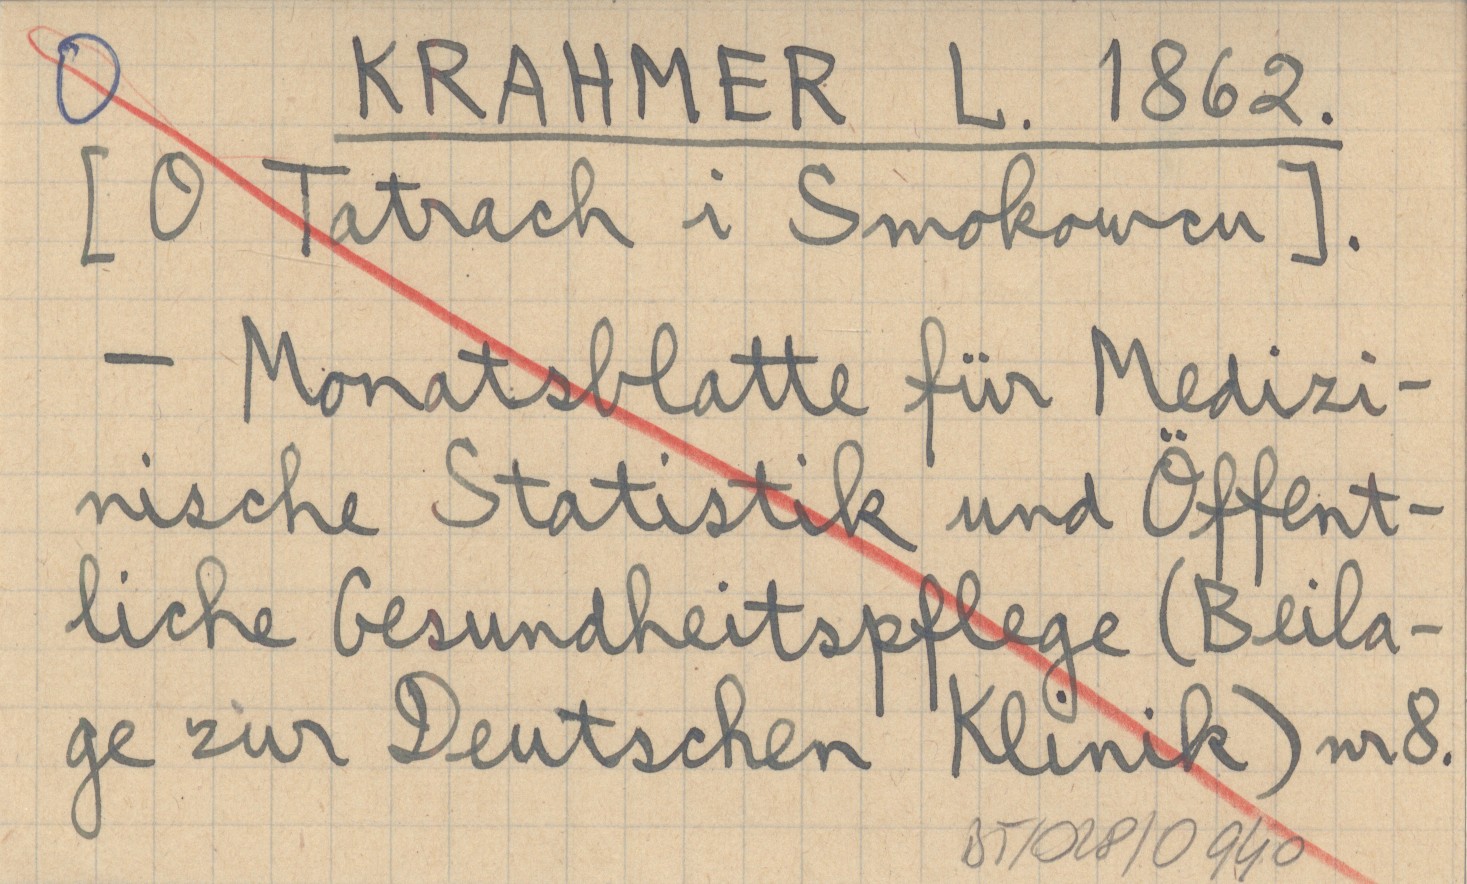 O KRAHMER L. 1862.
[O Tatrach i Smokowcu].
- Monatsblatte für Medizi-
nische Statistik und Öffent-
liche Gesundheitspflege (Beila-
ge zur Deutschen Klinik) nr 8.
BT/028/0940